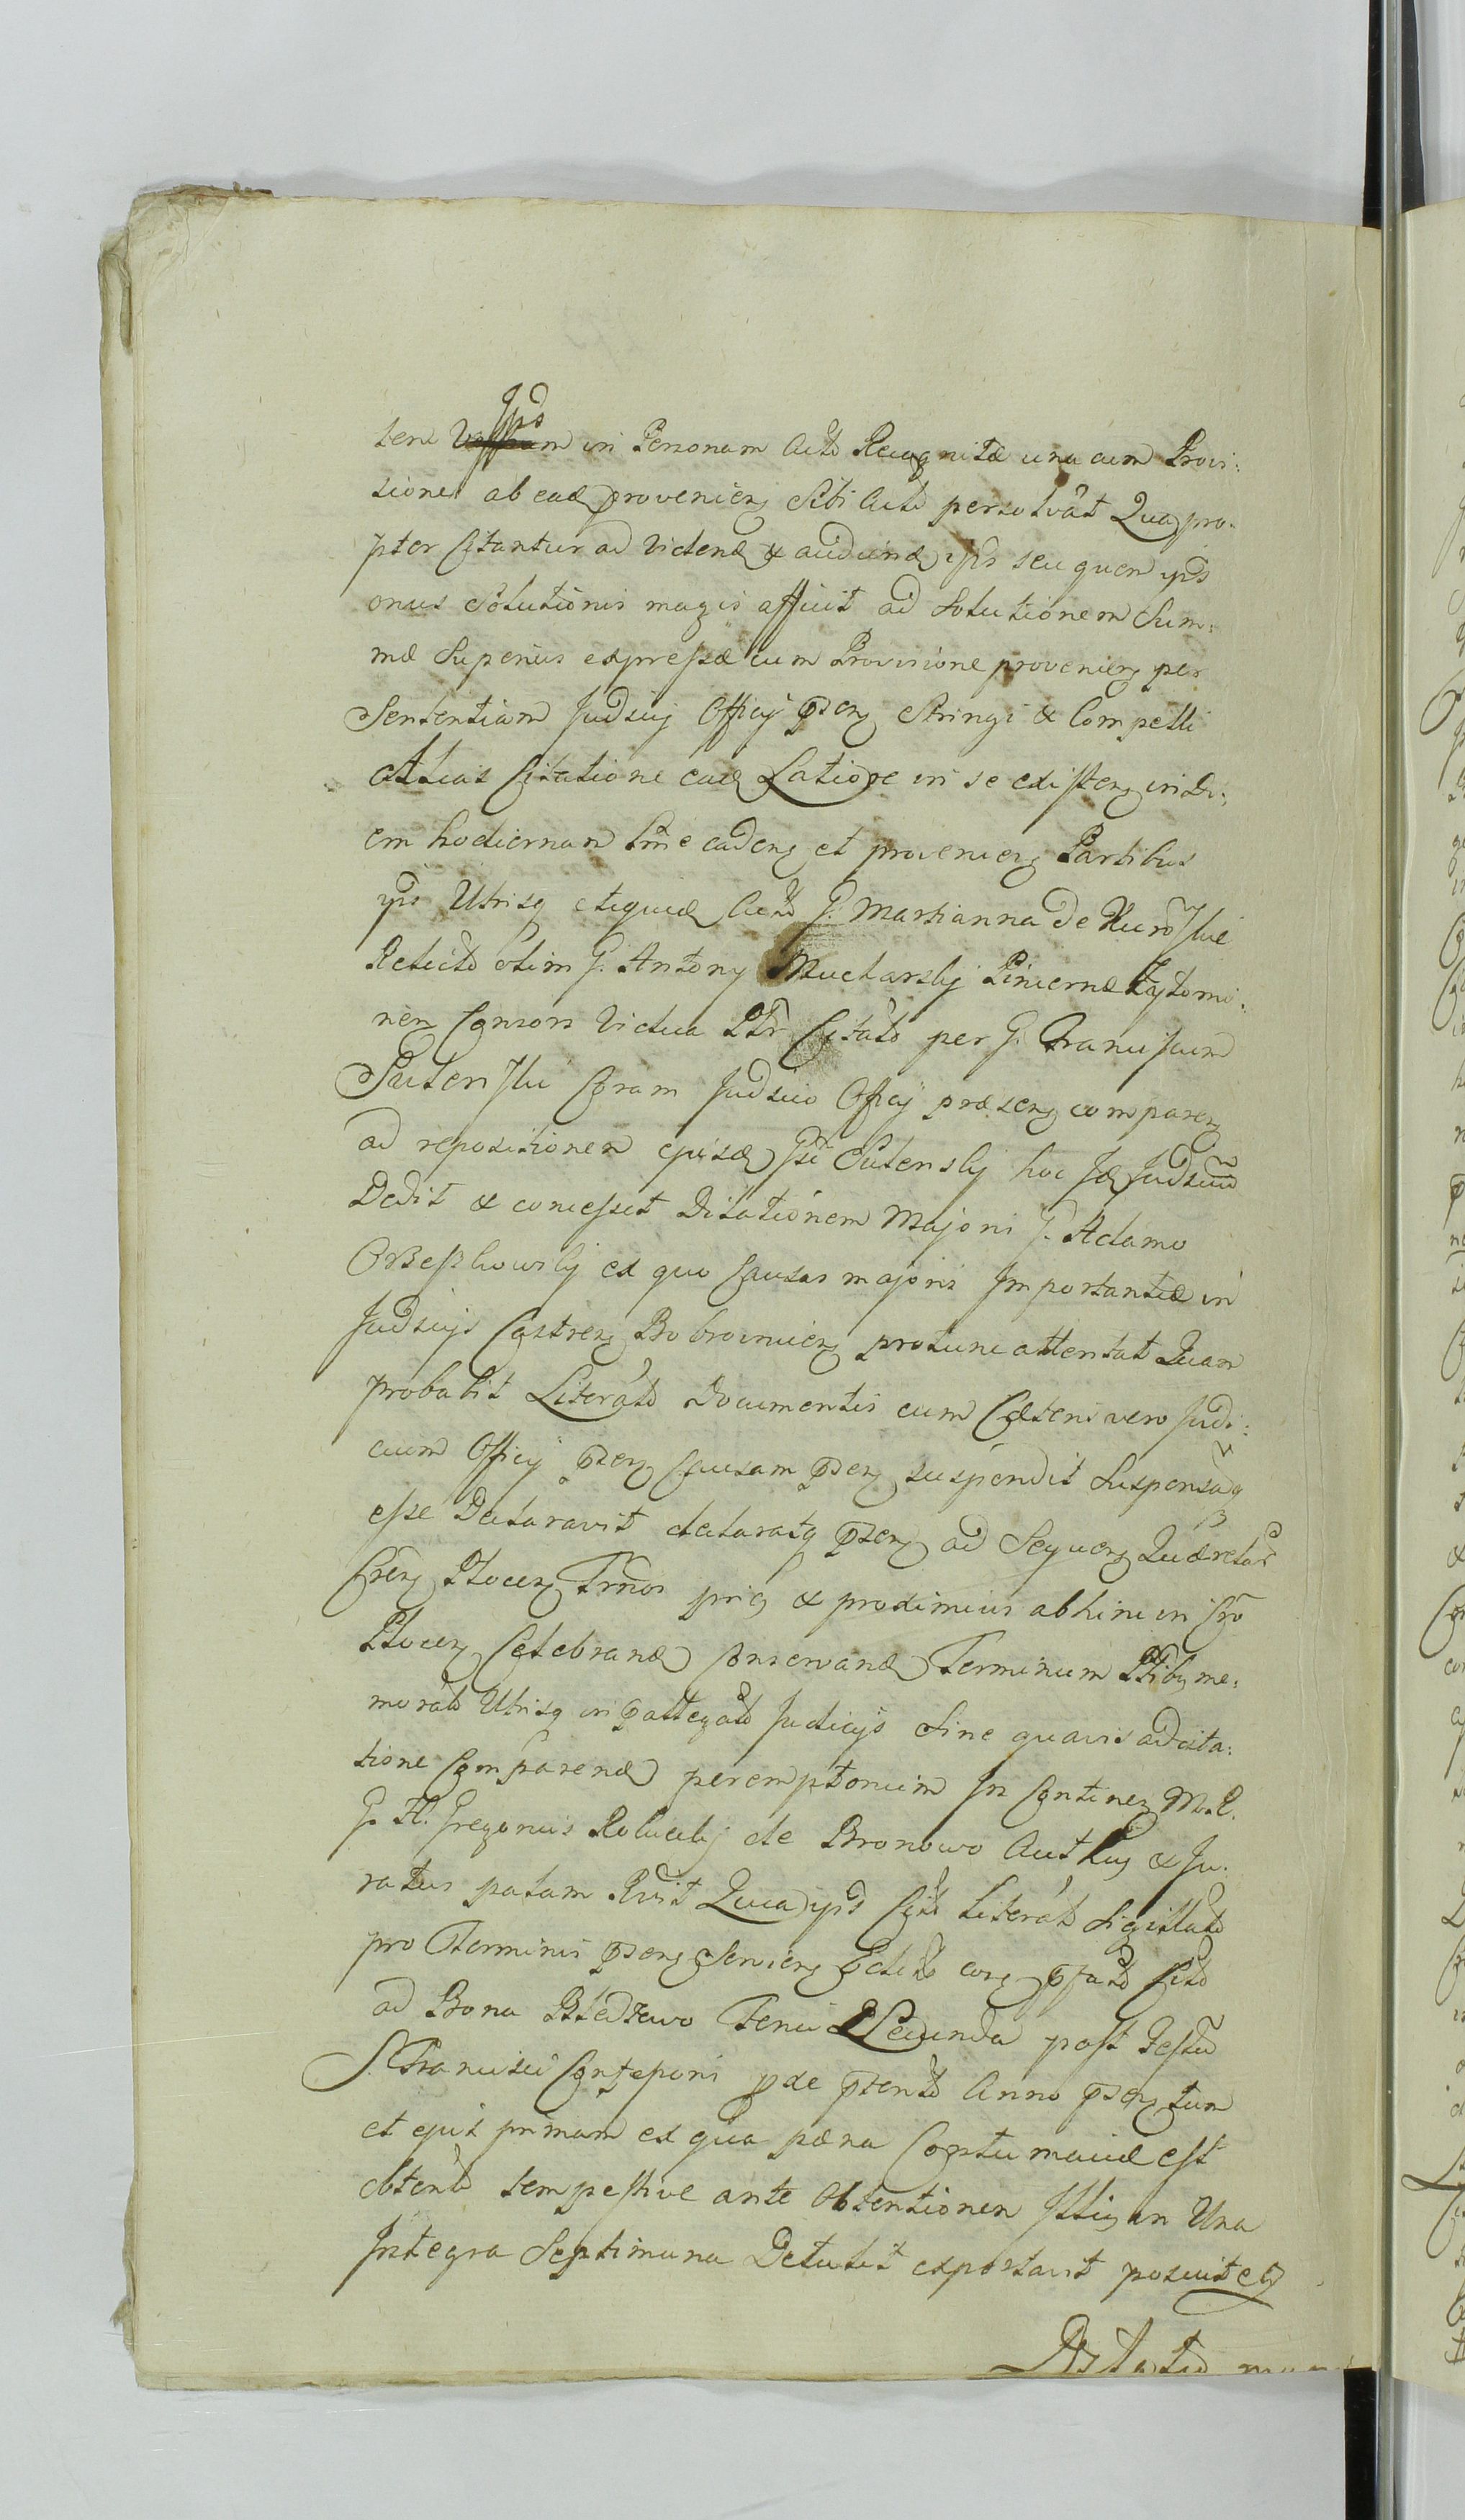 Ipd
tene in Personam Actd Recognitæ una cum Provi:
sione ab eade provenien Sibi Actd persolvãt Qua pro:
pter Citantur ad Videnđ & audiend ipsi seu quem ypđ
onus Solutionis magis afficit ad Solutionem Sum:
mæ Superius expressæ cum Provisione provenien per
Sententiam Judicij Officij Pseñ Stringi & Compelli
Alias Citatione eade Latiore in se existen in Di:
em hodiernam hine caden et provenien Partibus
ypis Utrisq Actđ G. Marianna de
Relictđ olim G. Antony Mucharsky Pincernæ Zytomi:
rien Consors Vidua Ptr Citatđ per G. Franciscum
Sutenski Coram Judicio Officij præsen comparen
ad repositionem ejusđ Gsi Sutensky hoc Judicium
Dedit & concessit Dilationem Majoris G. Adamo
Orzeszkowsky ex quo Causas majoris Importantiæ in
Judicijs Castren Bobrovnicen protunc attentat Quam
probabit Literatđ Documentis cum Cæteris vero Judi:
cium Officij Pseñ Causam Pseñ suspendit Suspensaq
esse Declaravit declaratq Pseñ ad Sequen Querelar
Cren Plocen Trnor prig & proximius abhinc in Cro
Plocen Celebranđ Conservanđ Terminum Ptibq me:
moratđ Utrisq in pallegatđ Judicijs Sine quavis adcita:
tione Comparenđ peremptorium In Continen M. R.
G. H. Gregorius de Bronowo Auth & Ju:
ratus palam Rvit Quia ypđ Citđ Literatđ Sigillatđ
pro Terminis Pseñ Servien Edit cors Citđ
ad Bona Tenu Secunda post Festum
S. Francisci Confessoris de Anno Pseñ tum
et ejus primam ex qua pæna Contumaciæ est
obtentđ tempestive ante Obtentionem Illiq in Una
Integra Septimana Detulit exportavit posuit